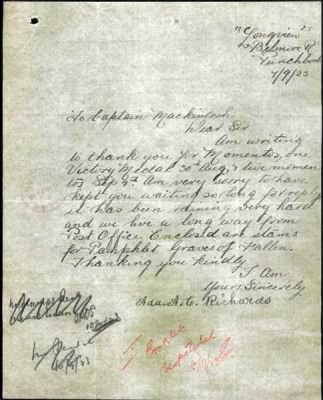 "Longview"
Belmore Rd
Punchbowl
7/9/23
To Captain Mackintosh
Dear Sir
Am writing
to thank you for Momentos, one
Victory Medal 30 Aug, & two momen
tos Sep 4th Am very sorry to have
kept you waiting so long for reply
it has been raining very hard
and we live a long way from
Post Office Enclosed are stams
for Pamphlet Graves of Fallen.
Thanking you kindly
I Am
Yours Sincerely
Ada. A. C. Richards
1 Booklet
despatched